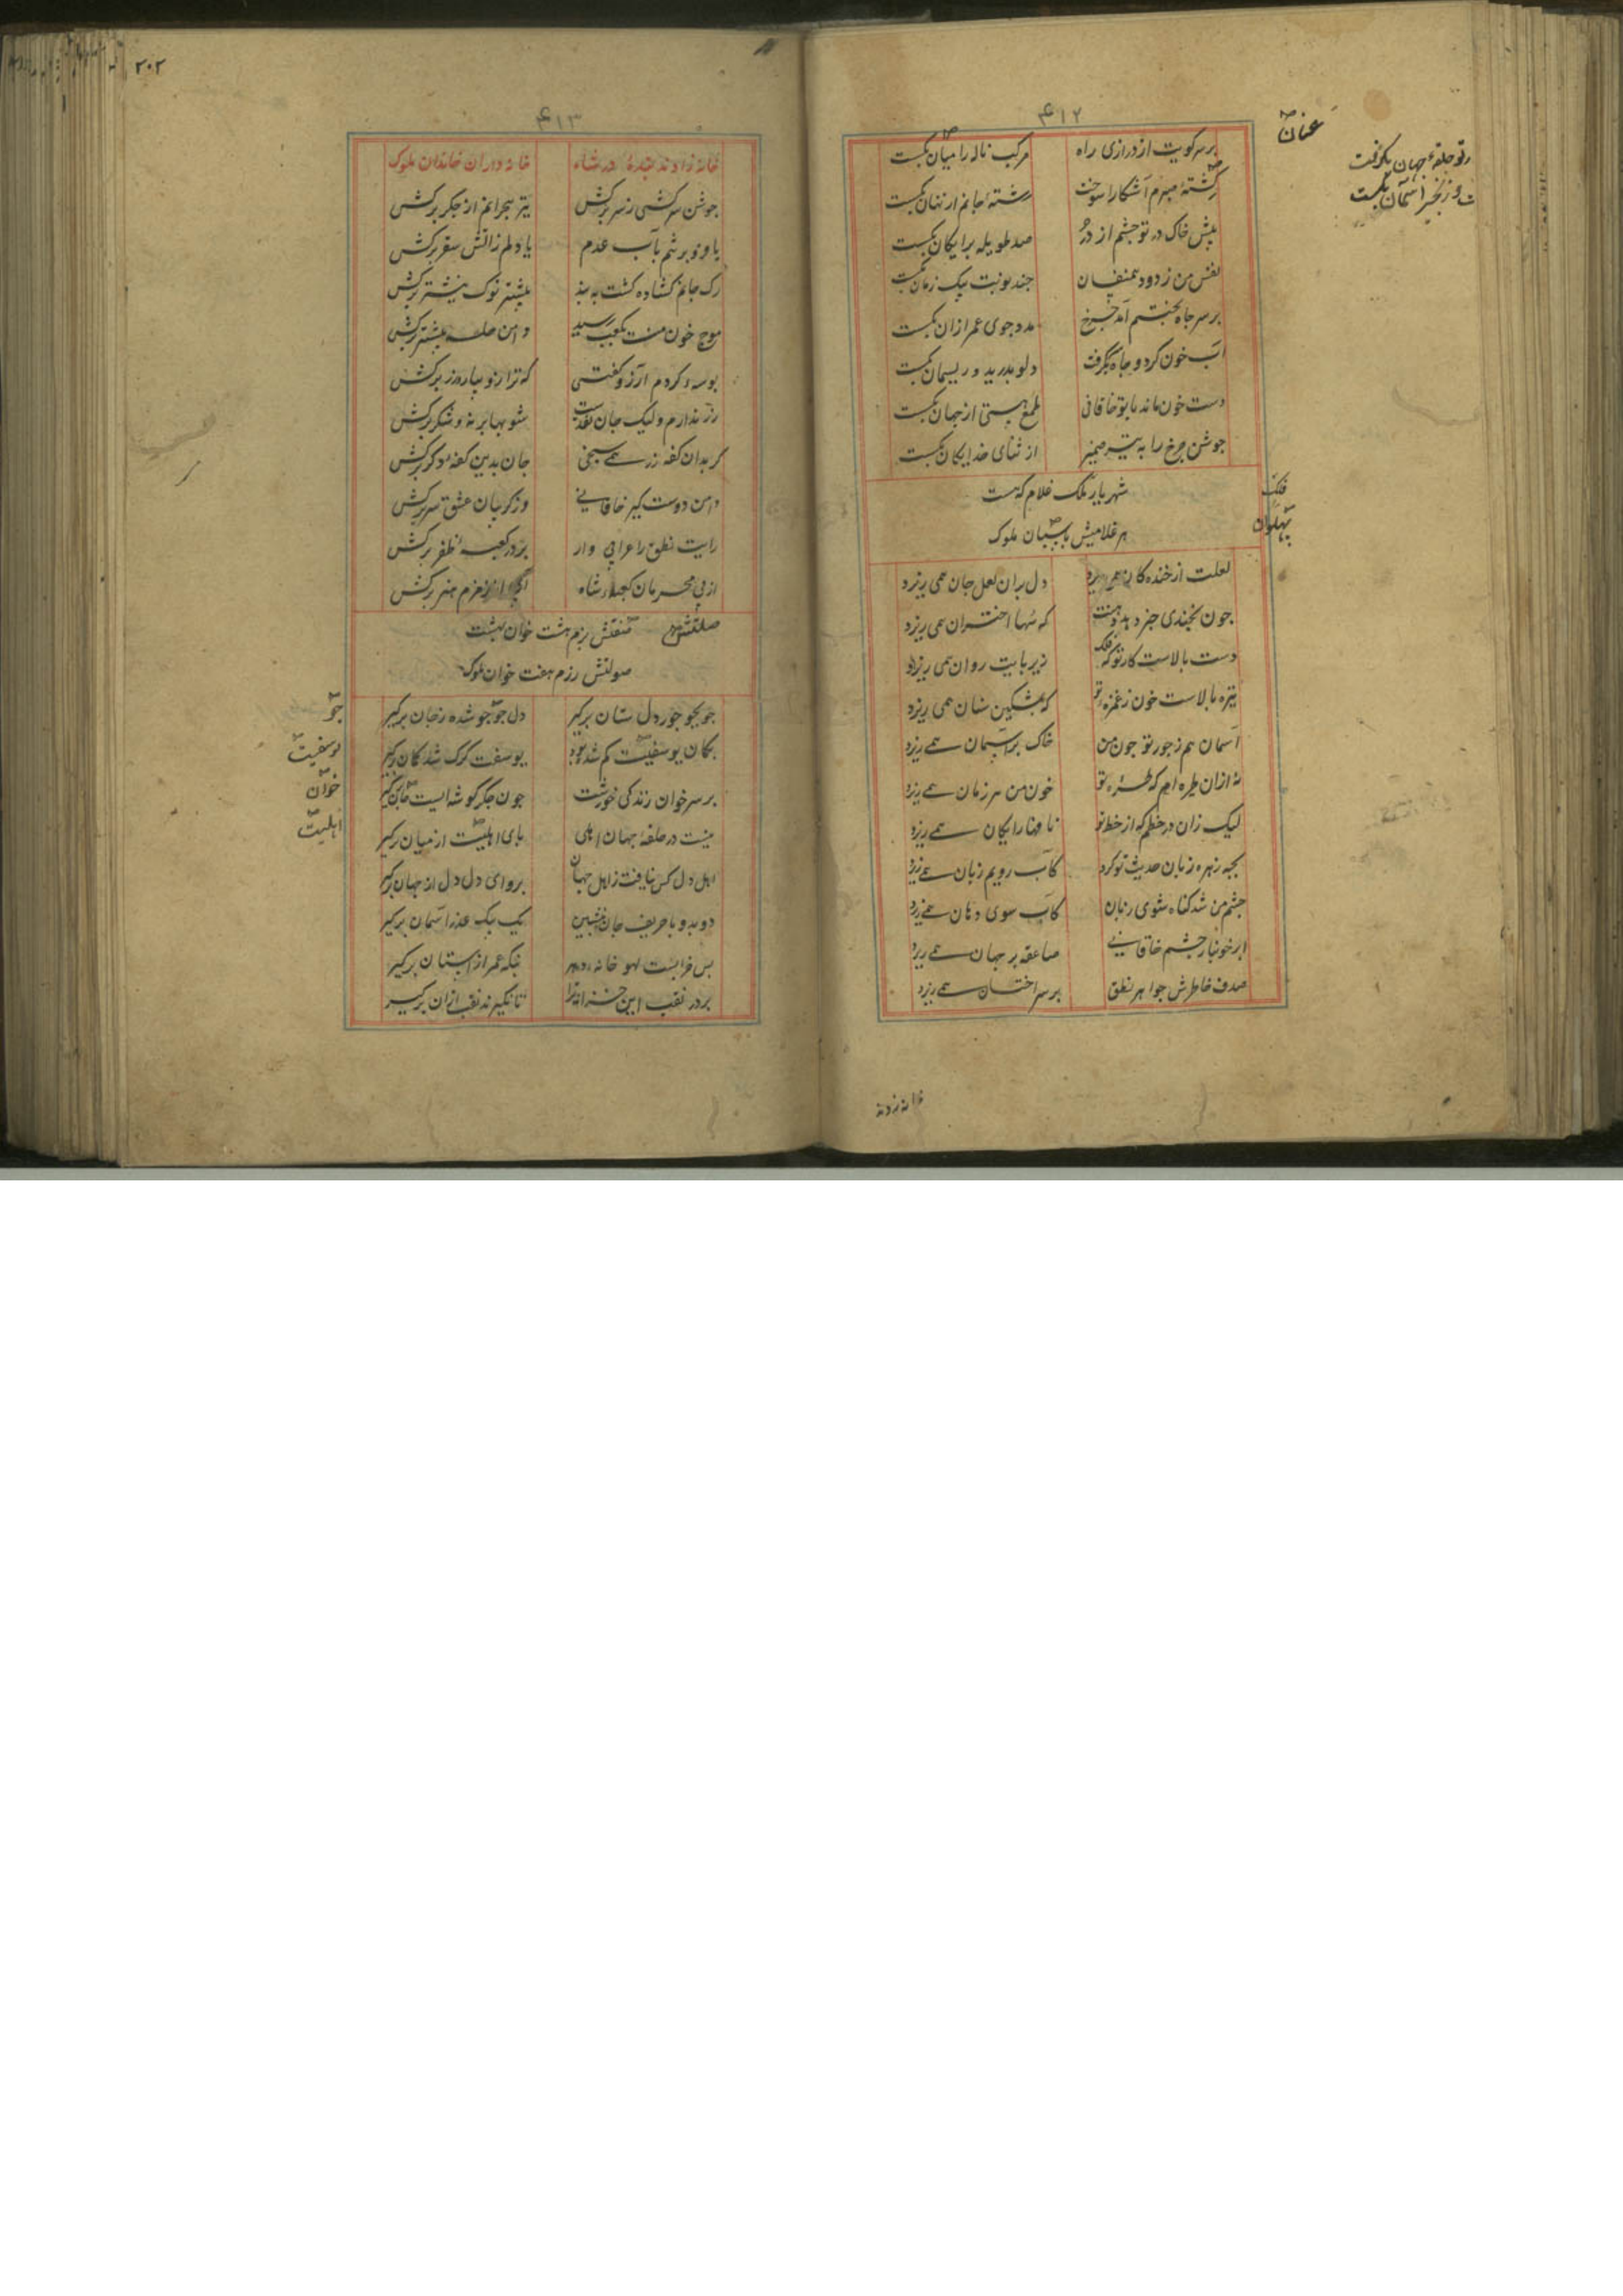 ۴۱۲
عنان
بر سر کویت از درازی راه
مرکب ناله را میان بکست
رشتهٔ صبرم آشکارا سوخت
رشتهٔ جانم از نهان بکست
پیش خاک در تو چشم از در
صد طویله برایکان بکست
نفس من ز دود همنفسان
چند نوبت بیک زمان بکست
بر سر جاه بختم آمد چرخ
مدد جوی عمر ازان بکست
آب خون کرد و جاه بکرفت
دلو بدرید و ریسمان بکست
دست خون ماند با تو خاقانی
طمع هستی از جهان بکست
جوشن چرخ را به تیر ضمیر
از ثنای خدایکان بکست
شهریار فلک غلام که هست
هر غلامیش پاسبان ملوک
فلک
پهلوان
لعلت از خنده کان همی ریزد
دل بران لعل جان همی ریزد
جون بخندی
که سها اختران همی ریزد
دست بالاست کار تو که فلک
زیر پایت روان همی ریزد
نیزه بالاست خون ز غمزه تو
که بمشکین سنان همی ریزد
آسمان هم ز جور تو جون من
خاک بر آسمان همی ریزد
نه ازان طیره ام که طره تو
خون من هر زمان همی ریزد
لیک زان در خطم که از خط تو
نافها رایکان همی ریزد
بچه زهره زبان حدیث تو کرد
کاب رویم زبان همی ریزد
چشم من شد کناه شوی زبان
کاب سوی دهان همی ریزد
ابر خونبار چشم خاقانی
صاعقه بر جهان همی ریزد
صدف خاطرش جواهر نطق
بر سر اختسان همی ریزد
۲۰۲
۴۱۳
خانه زادند بندهٔ در شاه
خانه داران خاندان ملوک
جوشن سرکشی ز سر برکش
تیر هجرانم از جکر برکش
یا وزو برشم بآب عدم
یا دلم ز آتش سقر برکش
رک جانم کشاده کشت ببند
بیشتر نوک نیشتر برکش
موج خون منت بکعب رسید
دامن حله بیشتر برکش
بوسه کردم آرزو کفتی
که ترازو بیار و زر برکش
زر ندارم ولیک جان نقدست
شو بها بر نه و شکر برکش
کر بدان کفه زر همی سنجی
جان بدین کفه دکر برکش
دامن دوست کیر خاقانی
وز کریبان عشق سر برکش
رایت نطق را عرابی وار
بر در کعبه ظفر برکش
از پی محرمان کعبه شاه
آب از زمزم هنر برکش
منقتش بزم هشت خوان بهشت
صولتش رزم هفت خوان ملوک
جو بجو جور دل ستان برکیر
دل جو جو شده ز جان برکیر
جو
بکان یوسفیت کم شده بود
یوسفت کرک شد کان برکیر
یوسفیت
بر سر خوان زندکی خورشت
جون جکر کوشه ایست
خوان
نیست در حلقهٔ جهان اهلی
پای اهلیت از میان برکیر
اهلیت
اهل دل کس نیافت ز اهل جهان
برو ای دل دل از جهان برکیر
دو بدو با حریف جان بنشین
یک بیک عذر آسمان برکیر
بس خرابست لهو خانه دهر
بنکه عمر ازاستان برکیر
بر در نقب این خزانه ترا
تا نکیرند نقب ازان برکیر